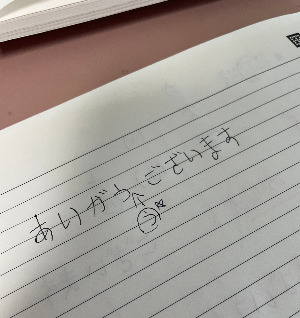 あいがうございます
う